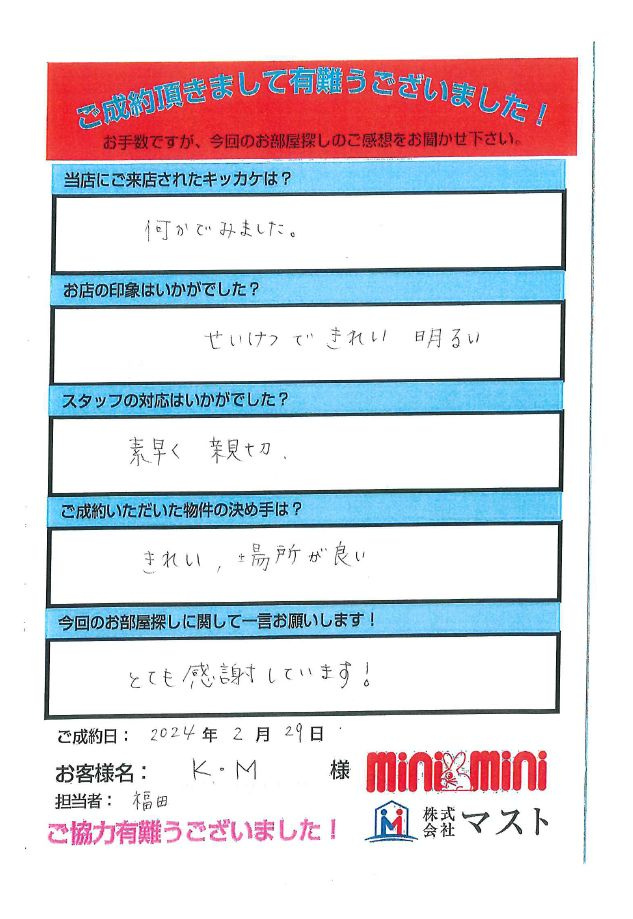 ご成約頂きまして有難うございました！
お手数ですが、今回のお部屋探しのご感想をお聞かせ下さい。
当店にご来店されたキッカケは？
何かでみました。
お店の印象はいかがでした？
せいけつで きれい 明るい
スタッフの対応はいかがでした？
素早く 親切.
ご成約いただいた物件の決め手は？
きれい, 場所が良い
今回のお部屋探しに関して一言お願いします！
とても感謝しています！
ご成約日： 2024 年 2 月 29 日
お客様名： K・M 様
担当者： 福田
ご協力有難うございました！
mini mini
株式会社 マスト